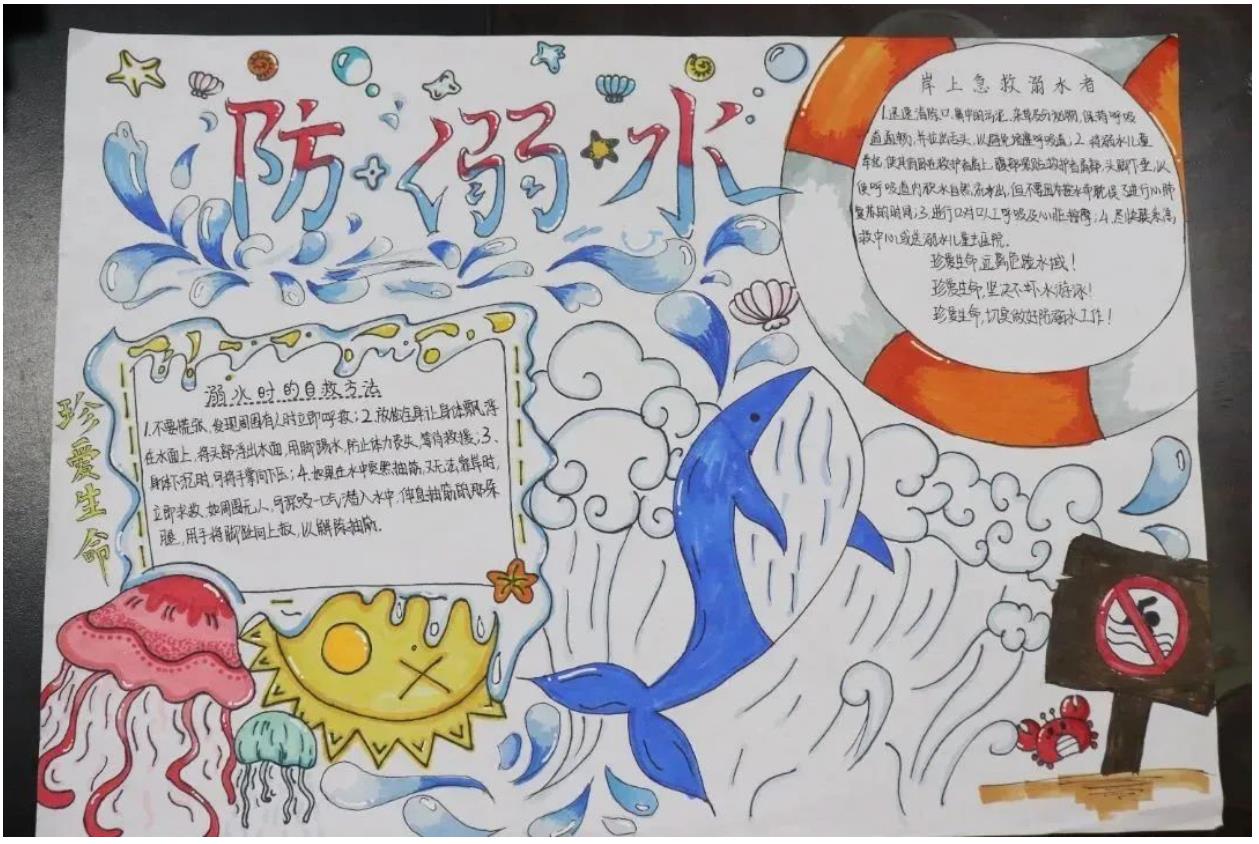 防溺水
岸上急救溺水者
1.迅速清除口、鼻中的污泥、杂草及分泌物,保持呼吸
道通畅,并拉出舌头,以避免堵塞呼吸道;2.将溺水儿童
举起,使其俯卧在救护者肩上,腹部紧贴救护者肩部,头脚下垂,以
使呼吸道内积水自然流出,但不要因为控水而耽误了进行心肺
复苏的时间;3.进行口对口人工呼吸及心脏按摩;4.尽快联系急
救中心或送溺水儿童去医院。
珍爱生命,远离危险水域!
珍爱生命,坚决不玩水游泳!
珍爱生命,切实做好防溺水工作!
珍爱生命
溺水时的自救方法
1.不要慌张,发现周围有人时立即呼救;2.放松全身,让身体飘浮
在水面上,将头部浮出水面,用脚踢水,防止体力丧失,等待救援;3、
身体下沉时,可将手掌向下压;4.如果在水中突然抽筋,又无法靠岸时,
立即求救。如周围无人,可深吸一口气潜入水中,伸直抽筋的那条
腿,用手将脚趾向上扳,以解除抽筋。